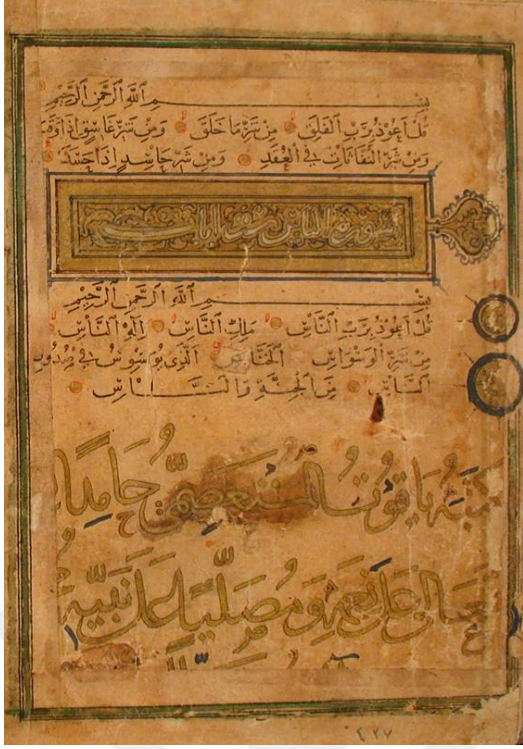 بِسْمِ اللَّهِ الرَّحْمَنِ الرَّحِيمِ
قُلْ أَعُوذُ بِرَبِّ الْفَلَقِ مِنْ شَرِّ مَا خَلَقَ وَمِنْ شَرِّ غَاسِقٍ إِذَا وَقَبَ
وَمِنْ شَرِّ النَّفَّاثَاتِ فِي الْعُقَدِ وَمِنْ شَرِّ حَاسِدٍ إِذَا حَسَدَ
سورة الناس ست ايات
بِسْمِ اللَّهِ الرَّحْمَنِ الرَّحِيمِ
قُلْ أَعُوذُ بِرَبِّ النَّاسِ مَلِكِ النَّاسِ إِلَهِ النَّاسِ
مِنْ شَرِّ الْوَسْوَاسِ الْخَنَّاسِ الَّذِي يُوَسْوِسُ فِي صُدُورِ
النَّاسِ مِنَ الْجِنَّةِ وَالنَّاسِ
كَتَبَهُ يَاقُوتُ الْمُسْتَعْصِمِيُّ حَامِدًا
تعالى عَلَى نِعَمِهِ وَمُصَلِّيًا عَلَى نَبِيِّهِ
٤٢٧